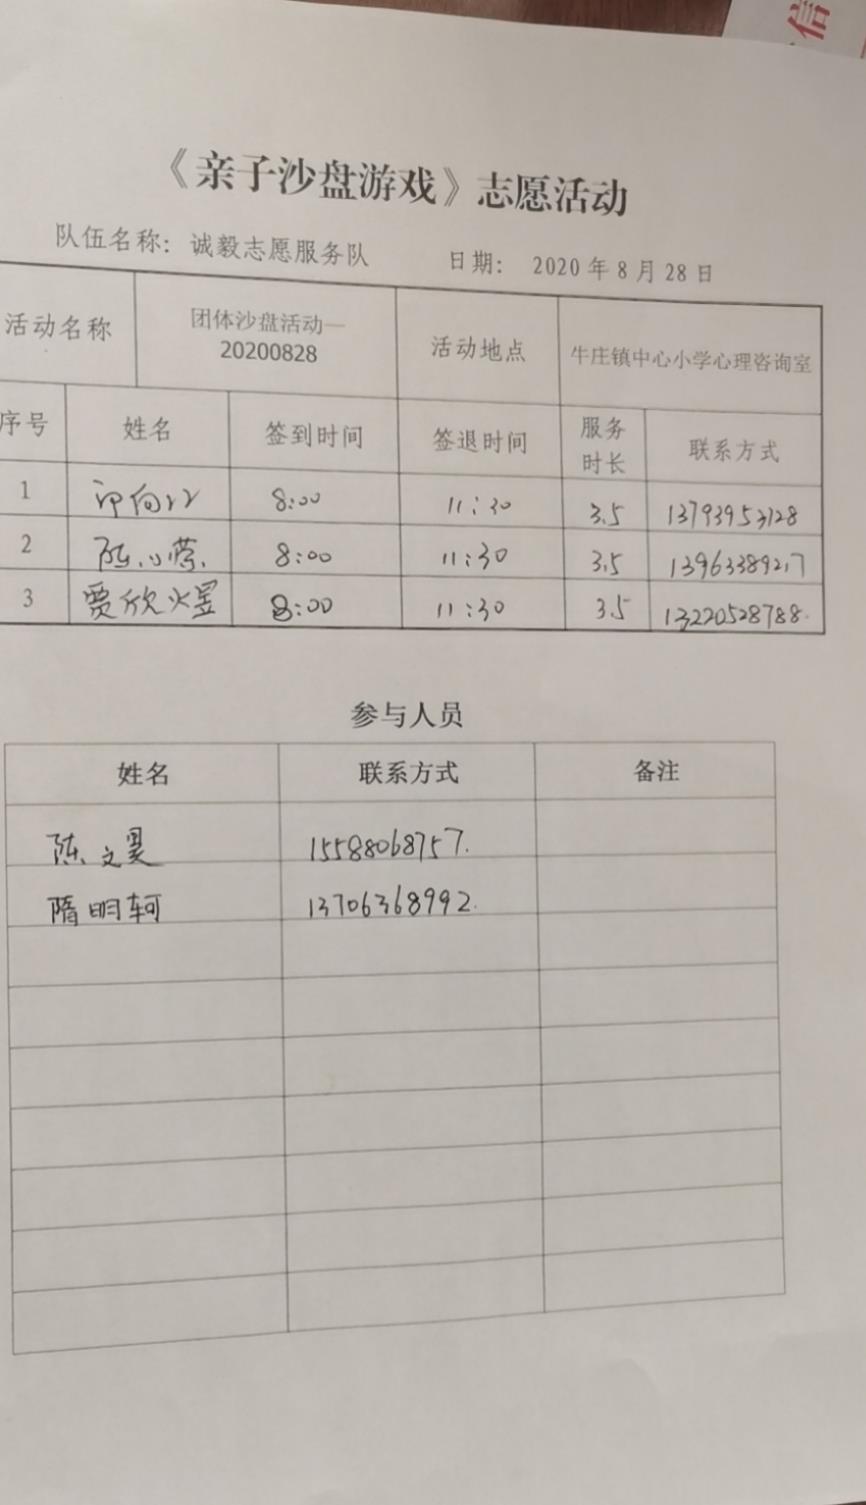 信
《亲子沙盘游戏》志愿活动
队伍名称：诚毅志愿服务队 日期： 2020 年 8 月 28 日
活动名称 团体沙盘活动—20200828 活动地点 牛庄镇中心小学心理咨询室
序号 姓名 签到时间 签退时间 服务时长 联系方式
1 8:00 11:30 3.5 13793953128
2 陈小莺 8:00 11:30 3.5
3 贾欣煜 8:00 11:30 3.5 13220528788
参与人员
姓名 联系方式 备注
陈文昊 15588068757
隋明轲 13706368992